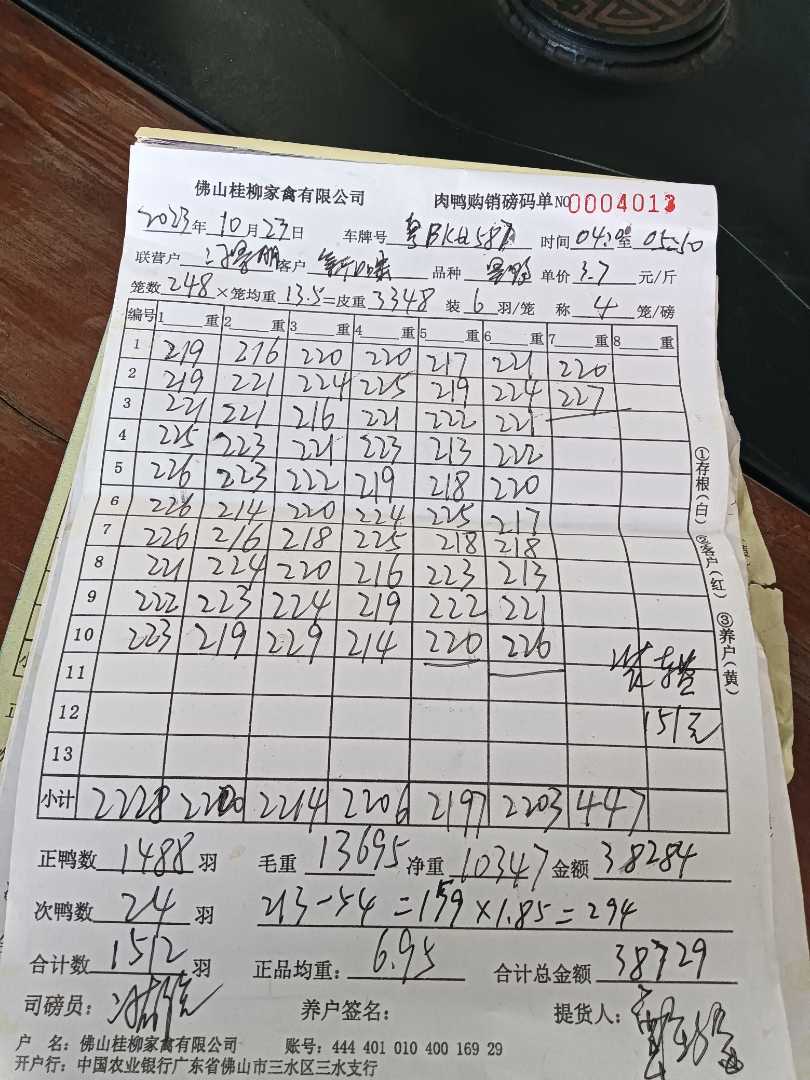 佛山桂柳家禽有限公司 肉鸭购销磅码单 NO 0004013
2023年10月23日 车牌号 粤BKH587 时间 04:10至05:50
联营户 客户 品种 单价 3.7 元/斤
笼数 248 ×笼均重 13.5=皮重 3348 装 6 羽/笼 称 4 笼/磅
编号 1 重 2 重 3 重 4 重 5 重 6 重 7 重 8 重
1 219 216 220 220 217 221 220
2 219 221 224 225 219 224 227
3 221 221 216 221 222 221
4 225 223 221 223 213 222
5 226 223 222 219 218 220
6 226 214 220 224 225 217
7 226 216 218 225 218 218
8 221 224 220 216 223 213
9 222 223 224 219 222 221
10 223 219 229 214 220 226
11
12
13
151元
小计 2228 2200 2214 2206 2197 2203 447
正鸭数 1488 羽 毛重 13695 净重 10347 金额 38284
次鸭数 24 羽 213-54=159×1.85=294
合计数 1512 羽 正品均重: 6.95 合计总金额 38729
司磅员: 养户签名: 提货人:
户 名: 佛山桂柳家禽有限公司 账号: 444 401 010 400 169 29
开户行: 中国农业银行广东省佛山市三水区三水支行
①存根(白) ②客户(红) ③养户(黄)